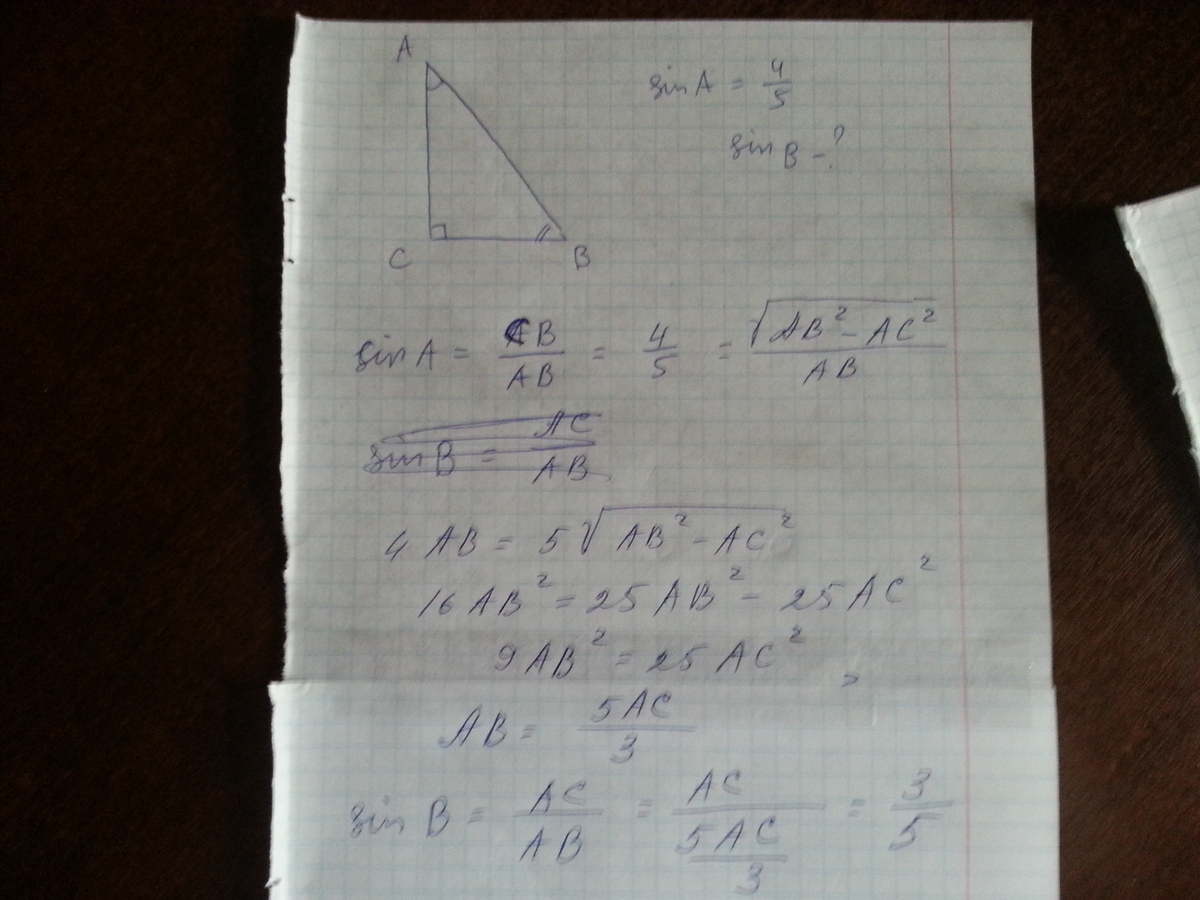 A
sin A = 4/5
sin B - ?
C B
sin A = CB/AB = 4/5 = √(AB² - AC²)/AB
sin B = AC/AB
4 AB = 5√(AB² - AC²)
16 AB² = 25 AB² - 25 AC²
9 AB² = 25 AC²
AB = 5AC/3
sin B = AC/AB = AC/(5AC/3) = 3/5